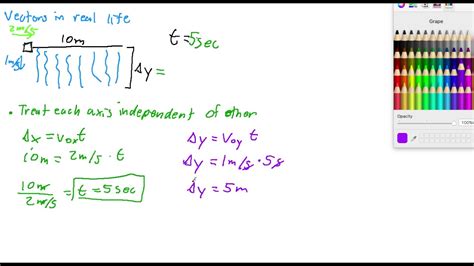 Vectors in real life
2m/s
10m
t = 5sec
1m/s
Δy =
• Treat each axis independent of other
Δx = v₀ₓt
10m = 2m/s · t
10m / 2m/s = t = 5sec
Δy = v₀ᵧ t
Δy = 1m/s · 5s
Δy = 5m
Grape
Opacity
100%